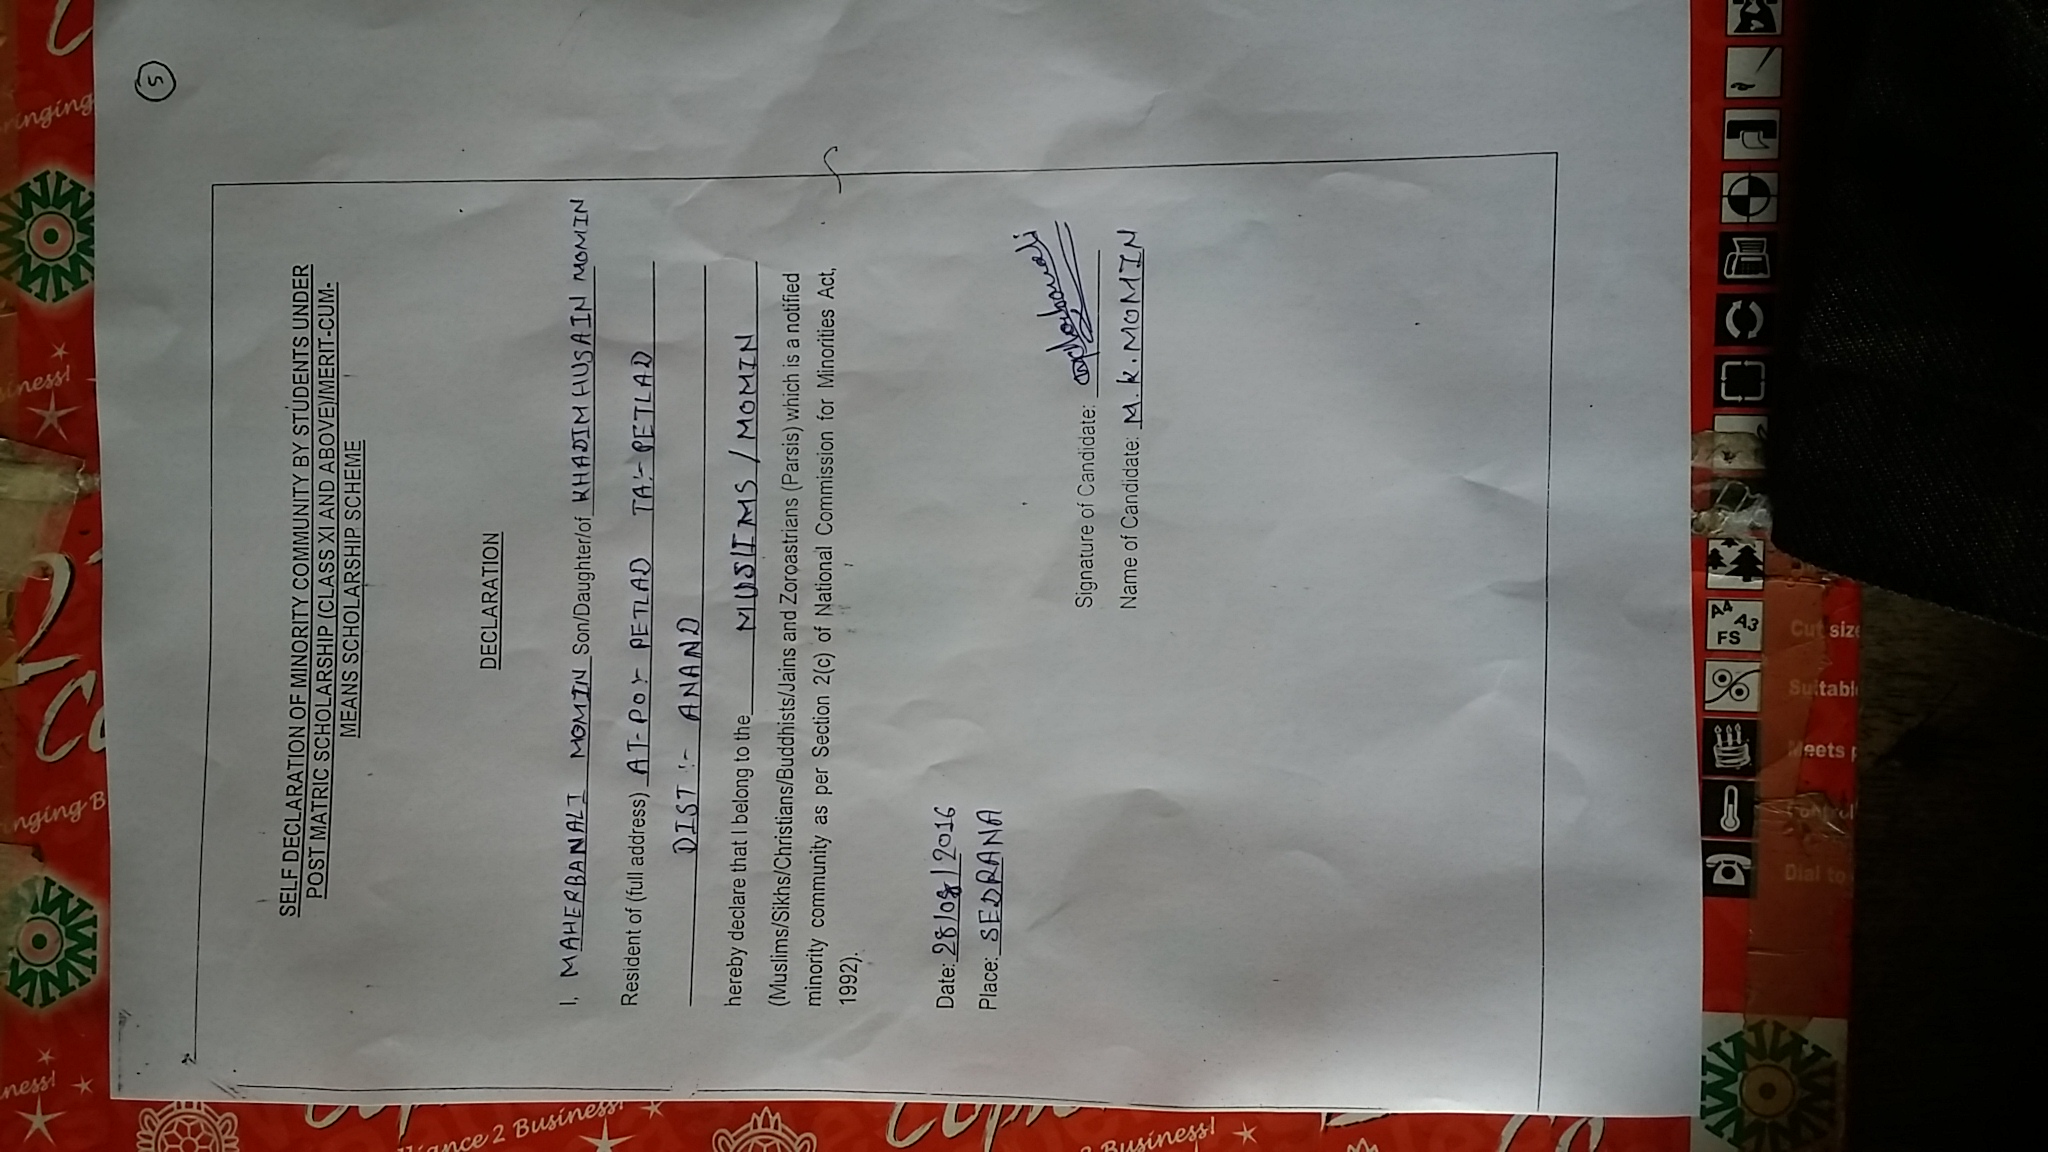 5
SELF DECLARATION OF MINORITY COMMUNITY BY STUDENTS UNDER
POST MATRIC SCHOLARSHIP (CLASS XI AND ABOVE)/MERIT-CUM-
MEANS SCHOLARSHIP SCHEME
DECLARATION
I, MAHERBANALI MOMIN Son/Daughter/of KHADIMHUSAIN MOMIN
Resident of (full address) AT-PO:- PETLAD TA:- PETLAD
DIST :- ANAND
hereby declare that I belong to the MUSLIMS / MOMIN
(Muslims/Sikhs/Christians/Buddhists/Jains and Zoroastrians (Parsis) which is a notified
minority community as per Section 2(c) of National Commission for Minorities Act,
1992).
Date: 28/08/2016
Place: SEDRANA
Signature of Candidate:
Name of Candidate: M.K.MOMIN
2 Business!
Business!
A4 A3
FS
Cut size
Dial to